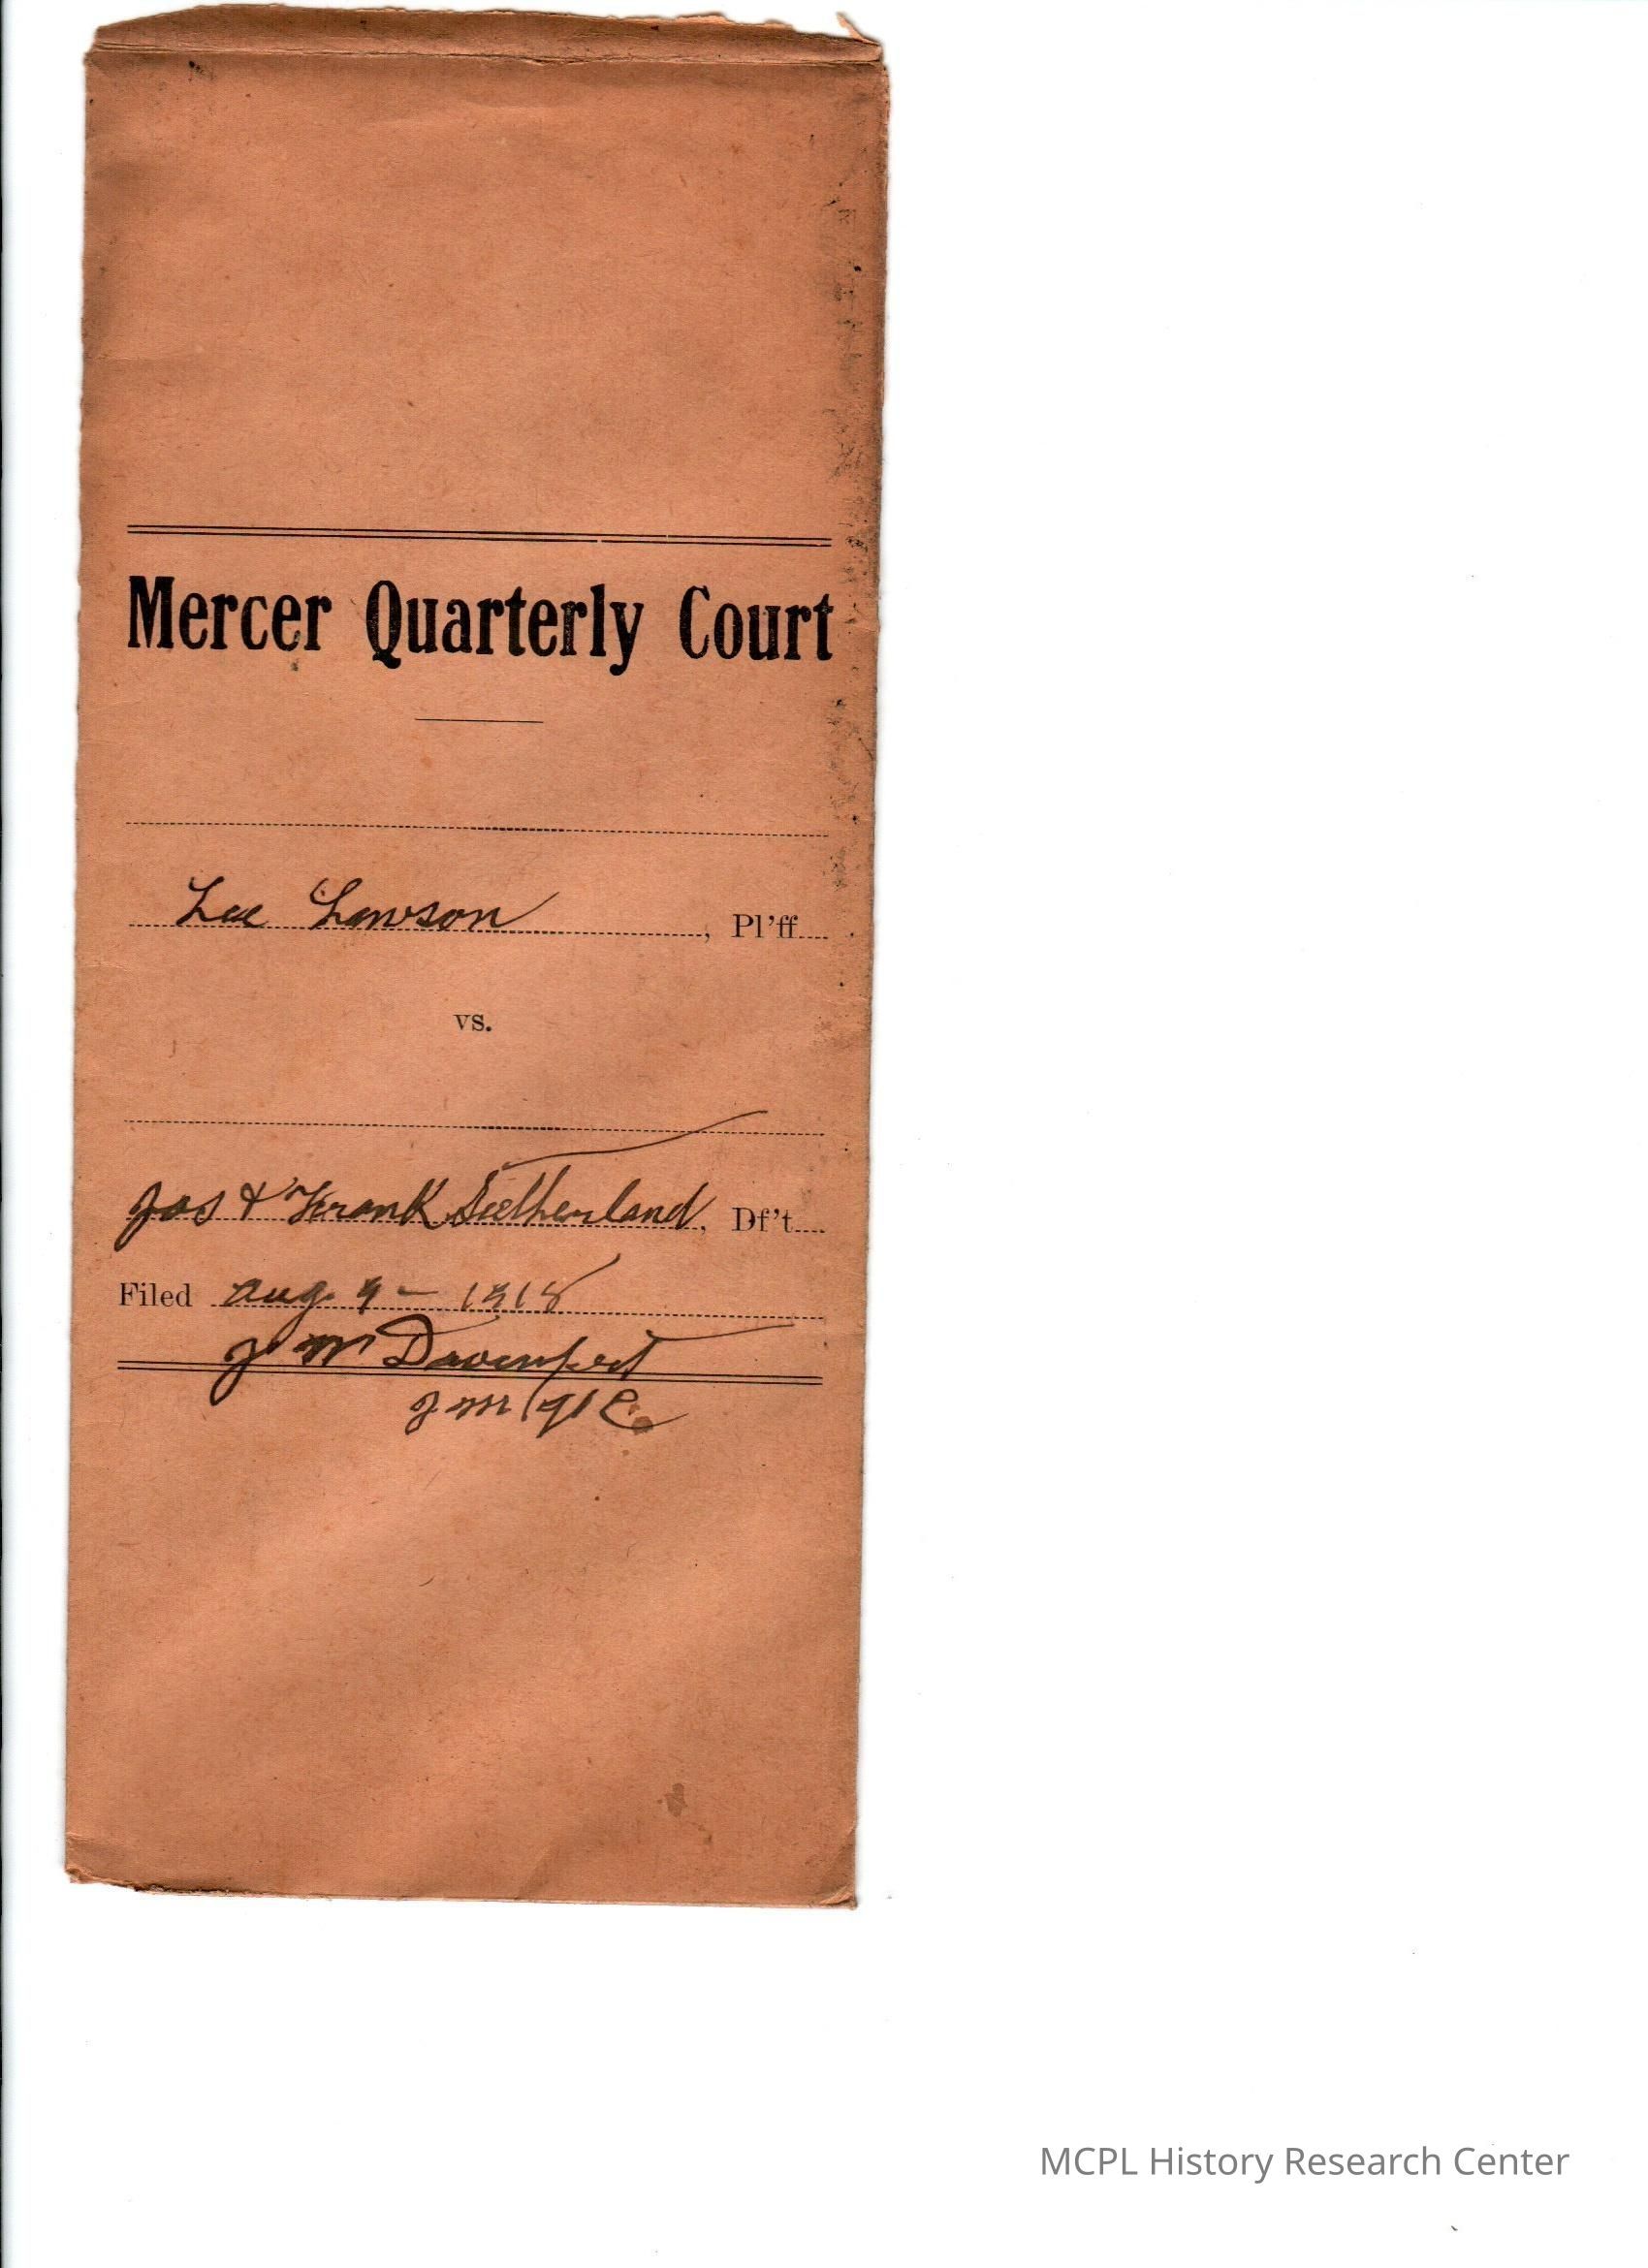 Mercer Quarterly Court
Lee Lawson, Pl'ff
vs.
Jos & Frank Sutherland, Df't
Filed Aug 9 - 1918
J M Davenport
MCPL History Research Center